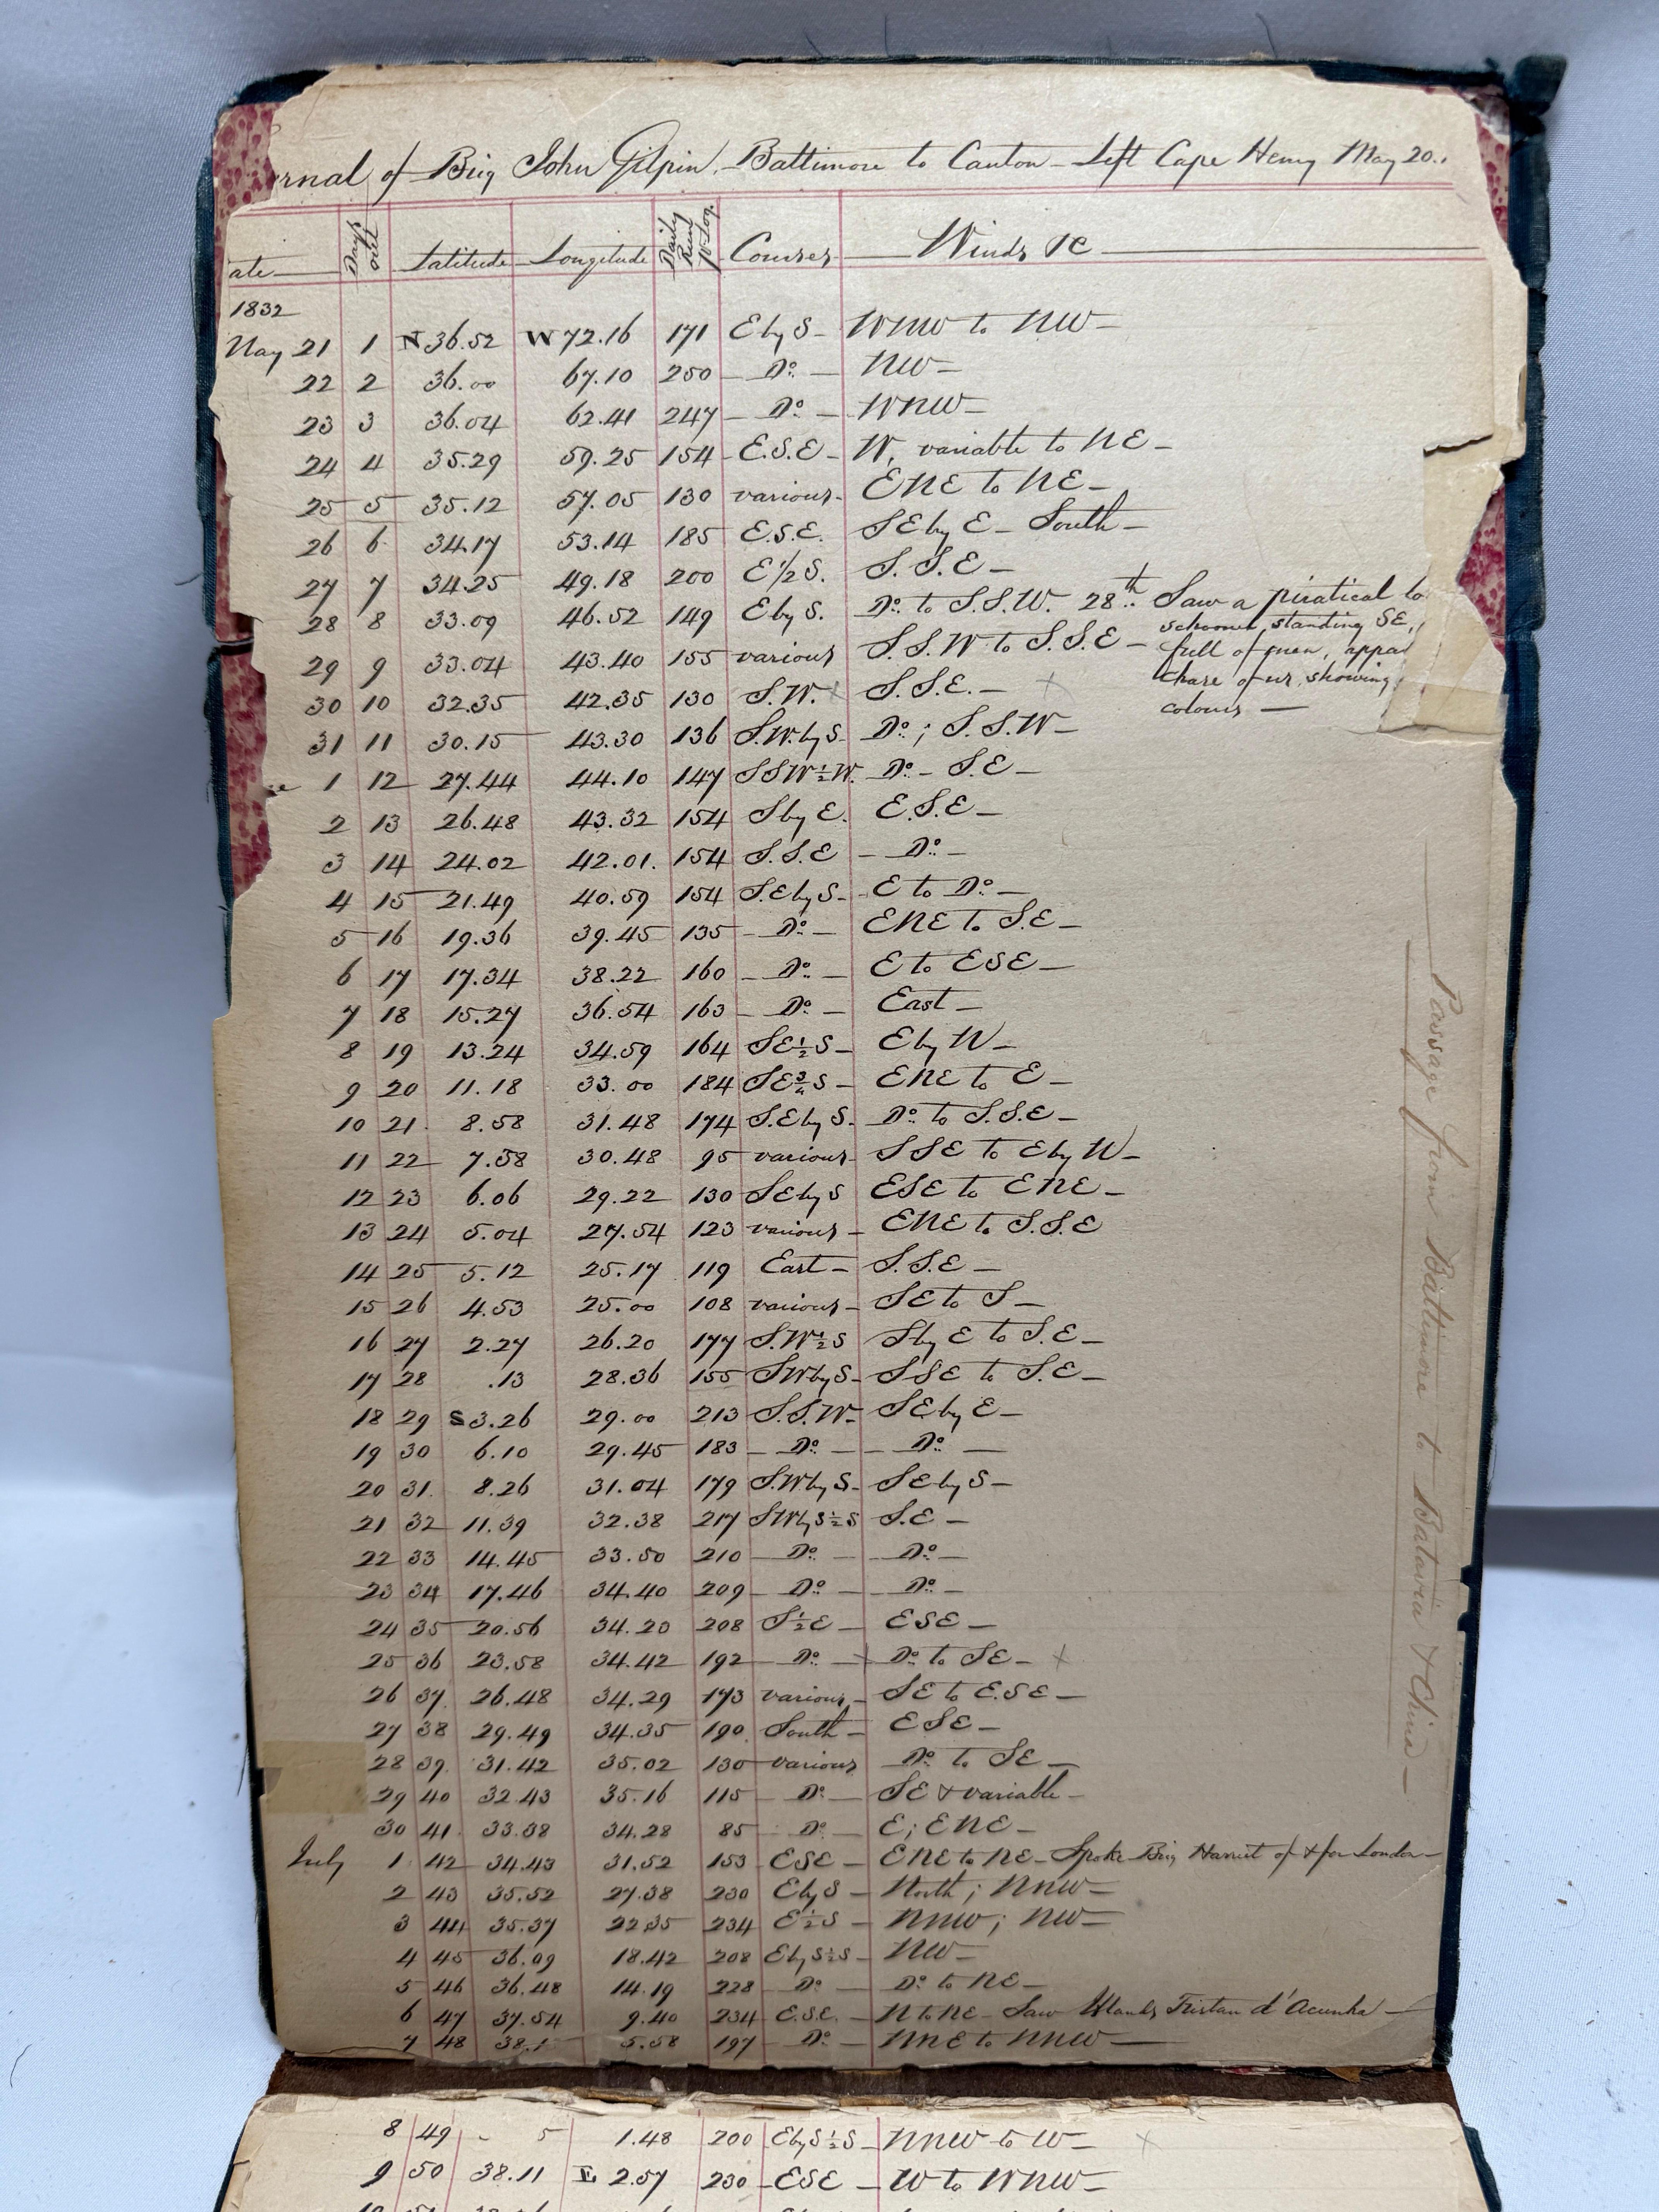 rnal of Brig John Gilpin. Baltimore to Canton – Left Cape Henry May 20..
ate Days out Latitude Longitude Daily Run pr Log. Courses Winds &c
1832
May 21 1 N 36.52 W 72.16 171 E by S – WNW to NW –
22 2 36.00 67.10 250 – Do. – NW –
23 3 36.04 62.41 247 – Do. – WNW –
24 4 35.29 59.25 154 – E.S.E – W, variable to NE –
25 5 35.12 57.05 130 various – ENE to NE –
26 6 34.17 53.14 185 E.S.E. SE by E – South –
27 7 34.25 49.18 200 E 1/2 S. S.S.E –
28 8 33.09 46.52 149 E by S. Do. to S.S.W. 28th.. Saw a piratical lo
schooner, standing SE,
29 9 33.04 43.40 155 various S.S.W to S.S.E – full of men, appa
30 10 32.35 42.35 130 S.W. x S.S.E. – x chase of us, showing
colours —
31 11 30.15 43.30 136 S.W. by S. Do. ; S.S.W –
1 12 27.44 44.10 147 SSW 1/2 W. Do. – S.E –
2 13 26.48 43.32 154 S by E. E.S.E –
3 14 24.02 42.01. 154 S.S.E – Do. –
4 15 21.49 40.59 154 S.E by S – E to Do. –
5 16 19.36 39.45 135 – Do. – ENE to S.E –
6 17 17.34 38.22 160 – Do. – E to ESE –
7 18 15.27 36.54 163 – Do. – East –
8 19 13.24 34.59 164 SE 1/2 S – E by N –
9 20 11.18 33.00 184 SE 3/4 S – ENE to E –
10 21. 8.58 31.48 174 S.E by S. Do. to S.S.E –
11 22 7.58 30.48 95 various – SSE to E by N –
12 23 6.06 29.22 130 SE by S ESE to ENE –
13 24 5.04 27.54 123 various – ENE to S.S.E
14 25 5.12 25.17 119 East – S.S.E –
15 26 4.53 25.00 108 various – SE to S –
16 27 2.27 26.20 177 S.W 1/2 S S by E to S.E –
17 28 .13 28.36 155 SW by S – SSE to S.E –
18 29 S 3.26 29.00 213 S.S.W – SE by E –
19 30 6.10 29.45 183 – Do. – – Do. –
20 31. 8.26 31.04 179 S.W by S – SE by S –
21 32 11.39 32.38 217 SW by S 1/2 S S.E –
22 33 14.45 33.50 210 – Do. – – Do. –
23 34 17.46 34.40 209 – Do. – – Do. –
24 35 20.56 34.20 208 S 1/2 E – ESE –
25 36 23.58 34.42 192 – Do. – x Do. to SE – x
26 37 26.48 34.29 173 various – SE to E.S.E –
27 38 29.49 34.35 190 South – ESE –
28 39 31.42 35.02 130 various Do. to SE –
29 40 32.43 35.16 115 – Do. – SE & variable –
30 41. 33.38 34.28 85 – Do. – E; ENE –
July 1 42 34.43 31.52 153 – ESE – ENE to NE – Spoke Brig Harriet of & for London –
2 43 35.52 27.38 230 E by S – North ; NNW –
3 44 35.37 22.35 234 E 1/2 S – NNW ; NW –
4 45 36.09 18.42 208 E by S 1/2 S – NW –
5 46 36.48 14.19 228 – Do. – Do. to NE –
6 47 37.54 9.40 234 – E.S.E. – N to NE – Saw Islands Tristan d'Acunha –
7 48 38.1 5.58 197 – Do. – NNE to NNW –
8 49 5 1.48 200 E by S 1/2 S – NNW to W – x
9 50 38.11 E 2.57 230 – ESE – W to WNW –
Passage from Baltimore to Batavia & China –